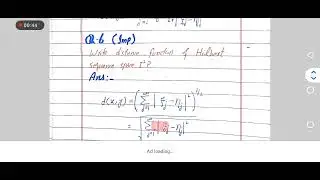 00:44
Q.6 (Imp)
Write distance function of Helbert
sequence space l²?
Ans:-
d(x,y) = (∑ j=1 ∞ | ξj - ηj |²)^1/2
= √ ∑ j=1 ∞ | ξj - ηj |²
Ad loading...